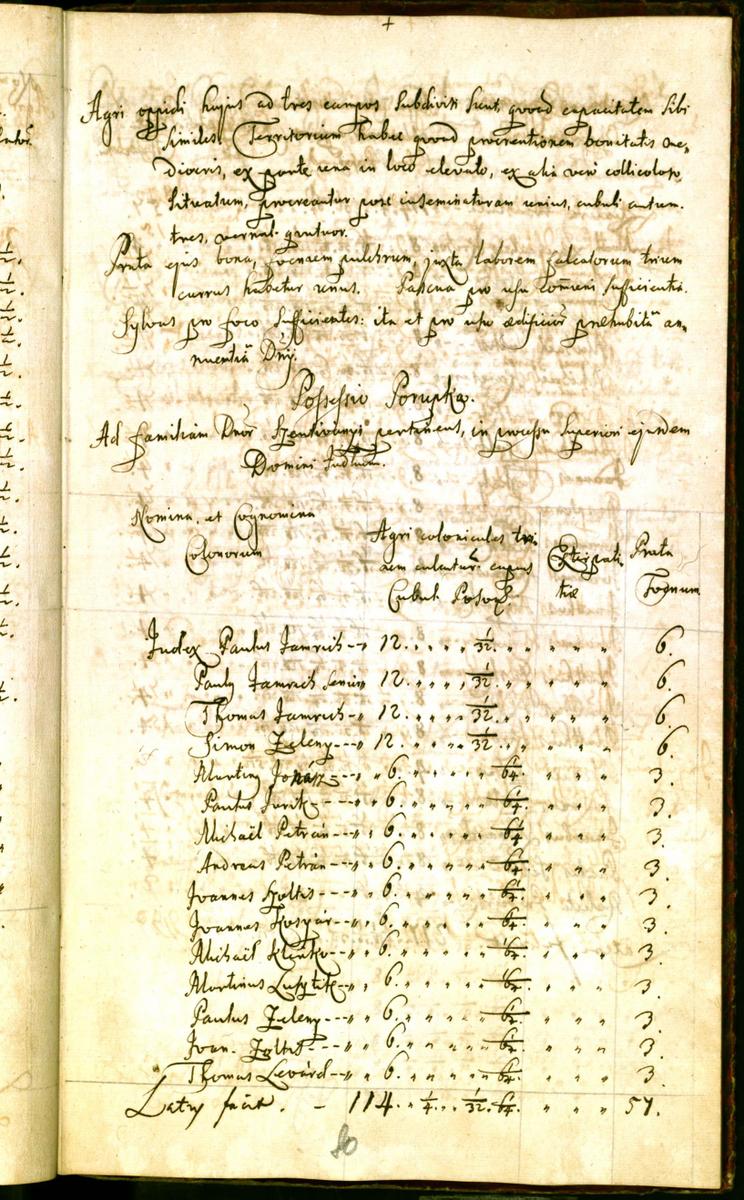 Agri oppidi hujus ad tres campos subdivisi sunt, quoad capacitatem sibi
similes. Territorium habet quoad procreationem bonitatis me-
diocris, ex parte una in loco elevato, ex alia vero collicoloso,
situatum, procreantur post inseminaturam unius, cubuli autum.
tres, vernal. quatuor.
Prata ejus bona, foenum pulchrum, juxta laborem falcatorum trium
currus habetur unus. Pascua pro usu comuni sufficientia.
Sylvas pro foco sufficientes: ita et pro usu aedificior praehabita an-
nuentia Dni.
Possessio Porupka.
Ad familiam Dnor Szentivanyi pertinens, in processu superiori ejusdem
Domini Judlium.
Nomina, et Cognomina
Colonorum
Agri colonicales tri-
am culcatur. campus
Cubul. Poson.
Extirpati-
tiae
Prata
Foenum
Judex Paulus Jamrich 12. 1/32. 6.
Pauly Jamrich Senior 12. 1/32. 6.
Thomas Jamrich 12. 1/32. 6.
Simon Zeleny 12. 1/32. 6.
Martiny Jonáss 6. 1/64. 3.
Paulus Jurik 6. 1/64. 3.
Michaël Petrán 6. 1/64. 3.
Andreas Petrán 6. 1/64. 3.
Joannes Soltis 6. 1/64. 3.
Joannes Kaspár 6. 1/64. 3.
Michaël Klinko 6. 1/64. 3.
Martinus 6. 1/64. 3.
Paulus Zeleny 6. 1/64. 3.
Joan. Soltis 6. 1/64. 3.
Thomas Levárd 6. 1/64. 3.
Laty facit. 114. 1/4. 1/32. 1/64. 57.